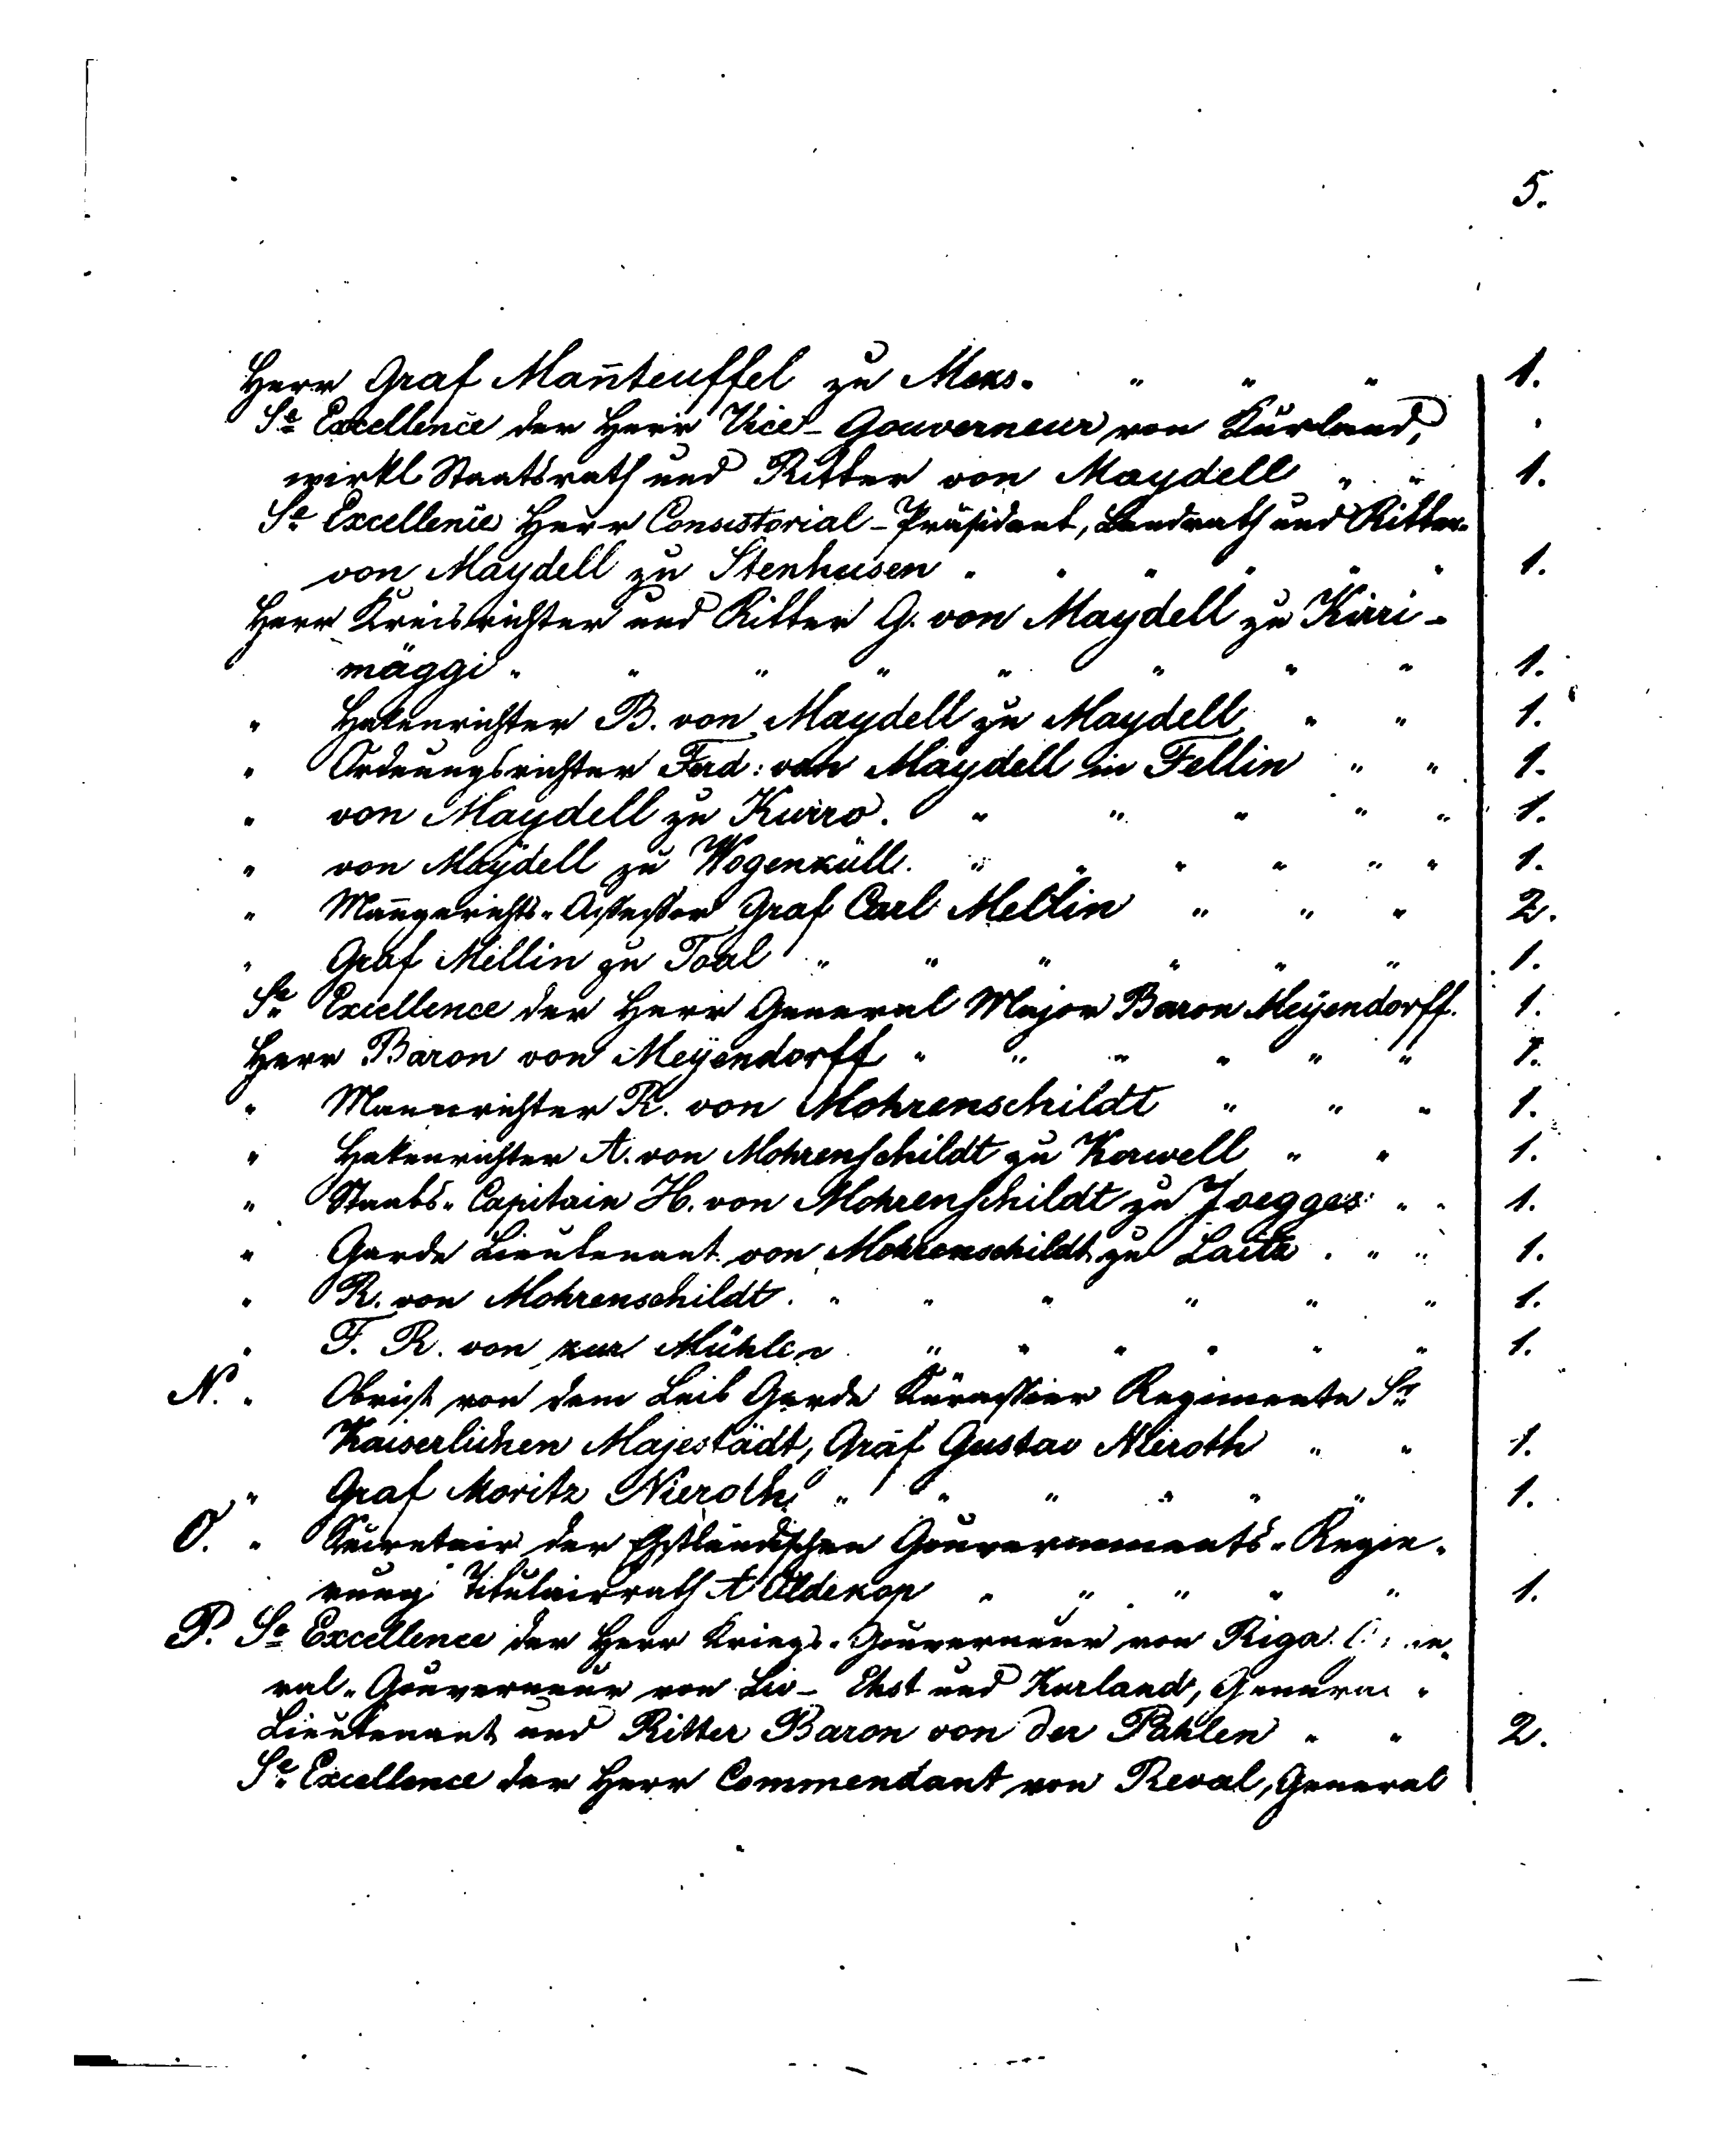 5.
Herr Graf Mañteuffel zu Meks. " " " 1.
Se Excellence der Herr Vice-Gouverneur von Kurland,
wirkl. Staatsrath und Ritter von Maydell " " 1.
Se Excellence Herr Consistorial-Präsident, Landrath und Ritter
von Maydell zu Stenhusen " " " " " " 1.
Herr Kreisrichter und Ritter G. von Maydell zu Kirri-
mäggi " " " " " " " " 1.
" Hakenrichter B. von Maydell zu Maydell " " 1.
" Ordnungsrichter Ferd: von Maydell in Fellin " " 1.
" von Maydell zu Kurro. " " " " " 1.
" von Maydell zu Wogenküll. " " " " " " 1.
" Mañgerichts-Assessor Graf Carl Mellin " " " 2.
" Graf Mellin zu Toal " " " " " " 1.
Se Excellence der Herr General Major Baron Meÿendorff. 1.
Herr Baron von Meÿendorff " " " " " " 1.
" Mannrichter R. von Mohrenschildt " " " 1.
" Hakenrichter A. von Mohrenschildt zu Kerwell " " 1.
" Staabs-Capitain H. von Mohrenschildt zu Joegges " " 1.
" Garde Lieutenant von Mohrenschildt zu Laitz " " " 1.
" R. von Mohrenschildt. " " " " " " 1.
" F. R. von zur Mühlen " " " " " " 1.
N. " Obrist von dem Leib Garde Kürassier Regimente Sr
Kaiserlichen Majestädt, Graf Gustav Nieroth " " 1.
" Graf Moritz Nieroth " " " " " " 1.
O. " Secretair der Ehstländischen Gouvernements-Regie-
rung Titulairrath A Oldekop " " " " " 1.
P. Se Excellence der Herr Kriegs-Gouverneur von Riga.
ral-Gouverneur von Liv- Ehst und Kurland, General
Lieutenant und Ritter Baron von der Pahlen " " 2.
Se Excellence der Herr Commendant von Reval, General